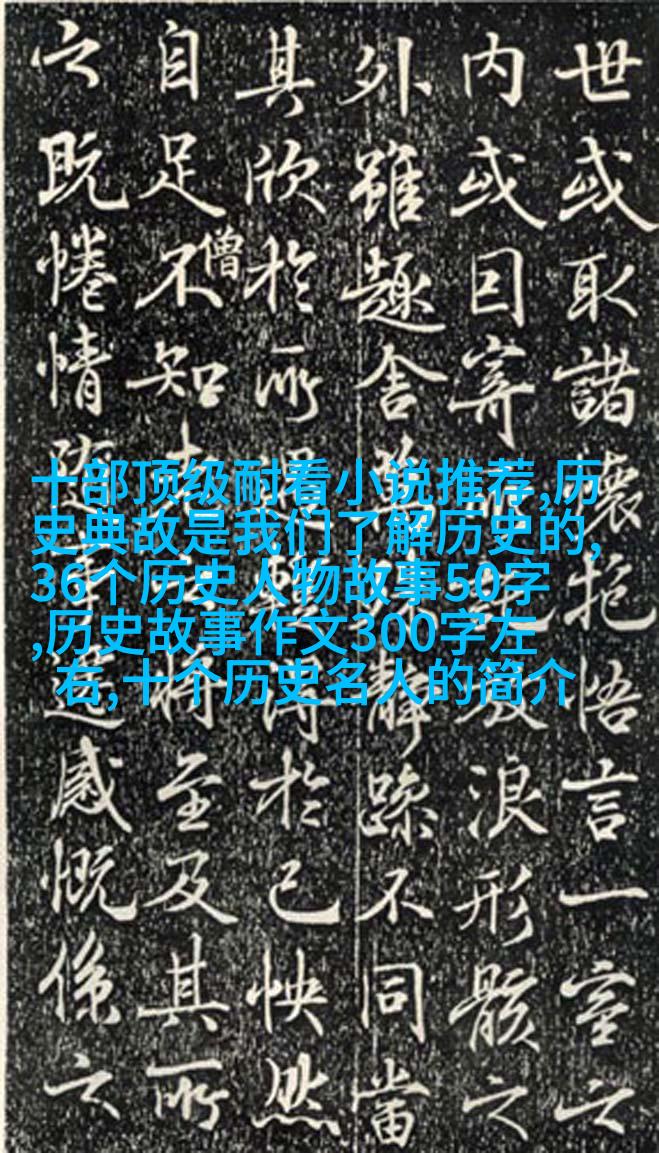 世或取諸懷抱悟言一室之
内或因寄所託放浪形骸之
外雖趣舍萬殊静躁不同當
其欣於所遇暫得於己怏然
自足不知老之将至及其所
僧
之既惓情随事遷感慨係之
十部顶级耐看小说推荐,历
史典故是我们了解历史的,
36个历史人物故事50字
,历史故事作文300字左
右,十个历史名人的简介